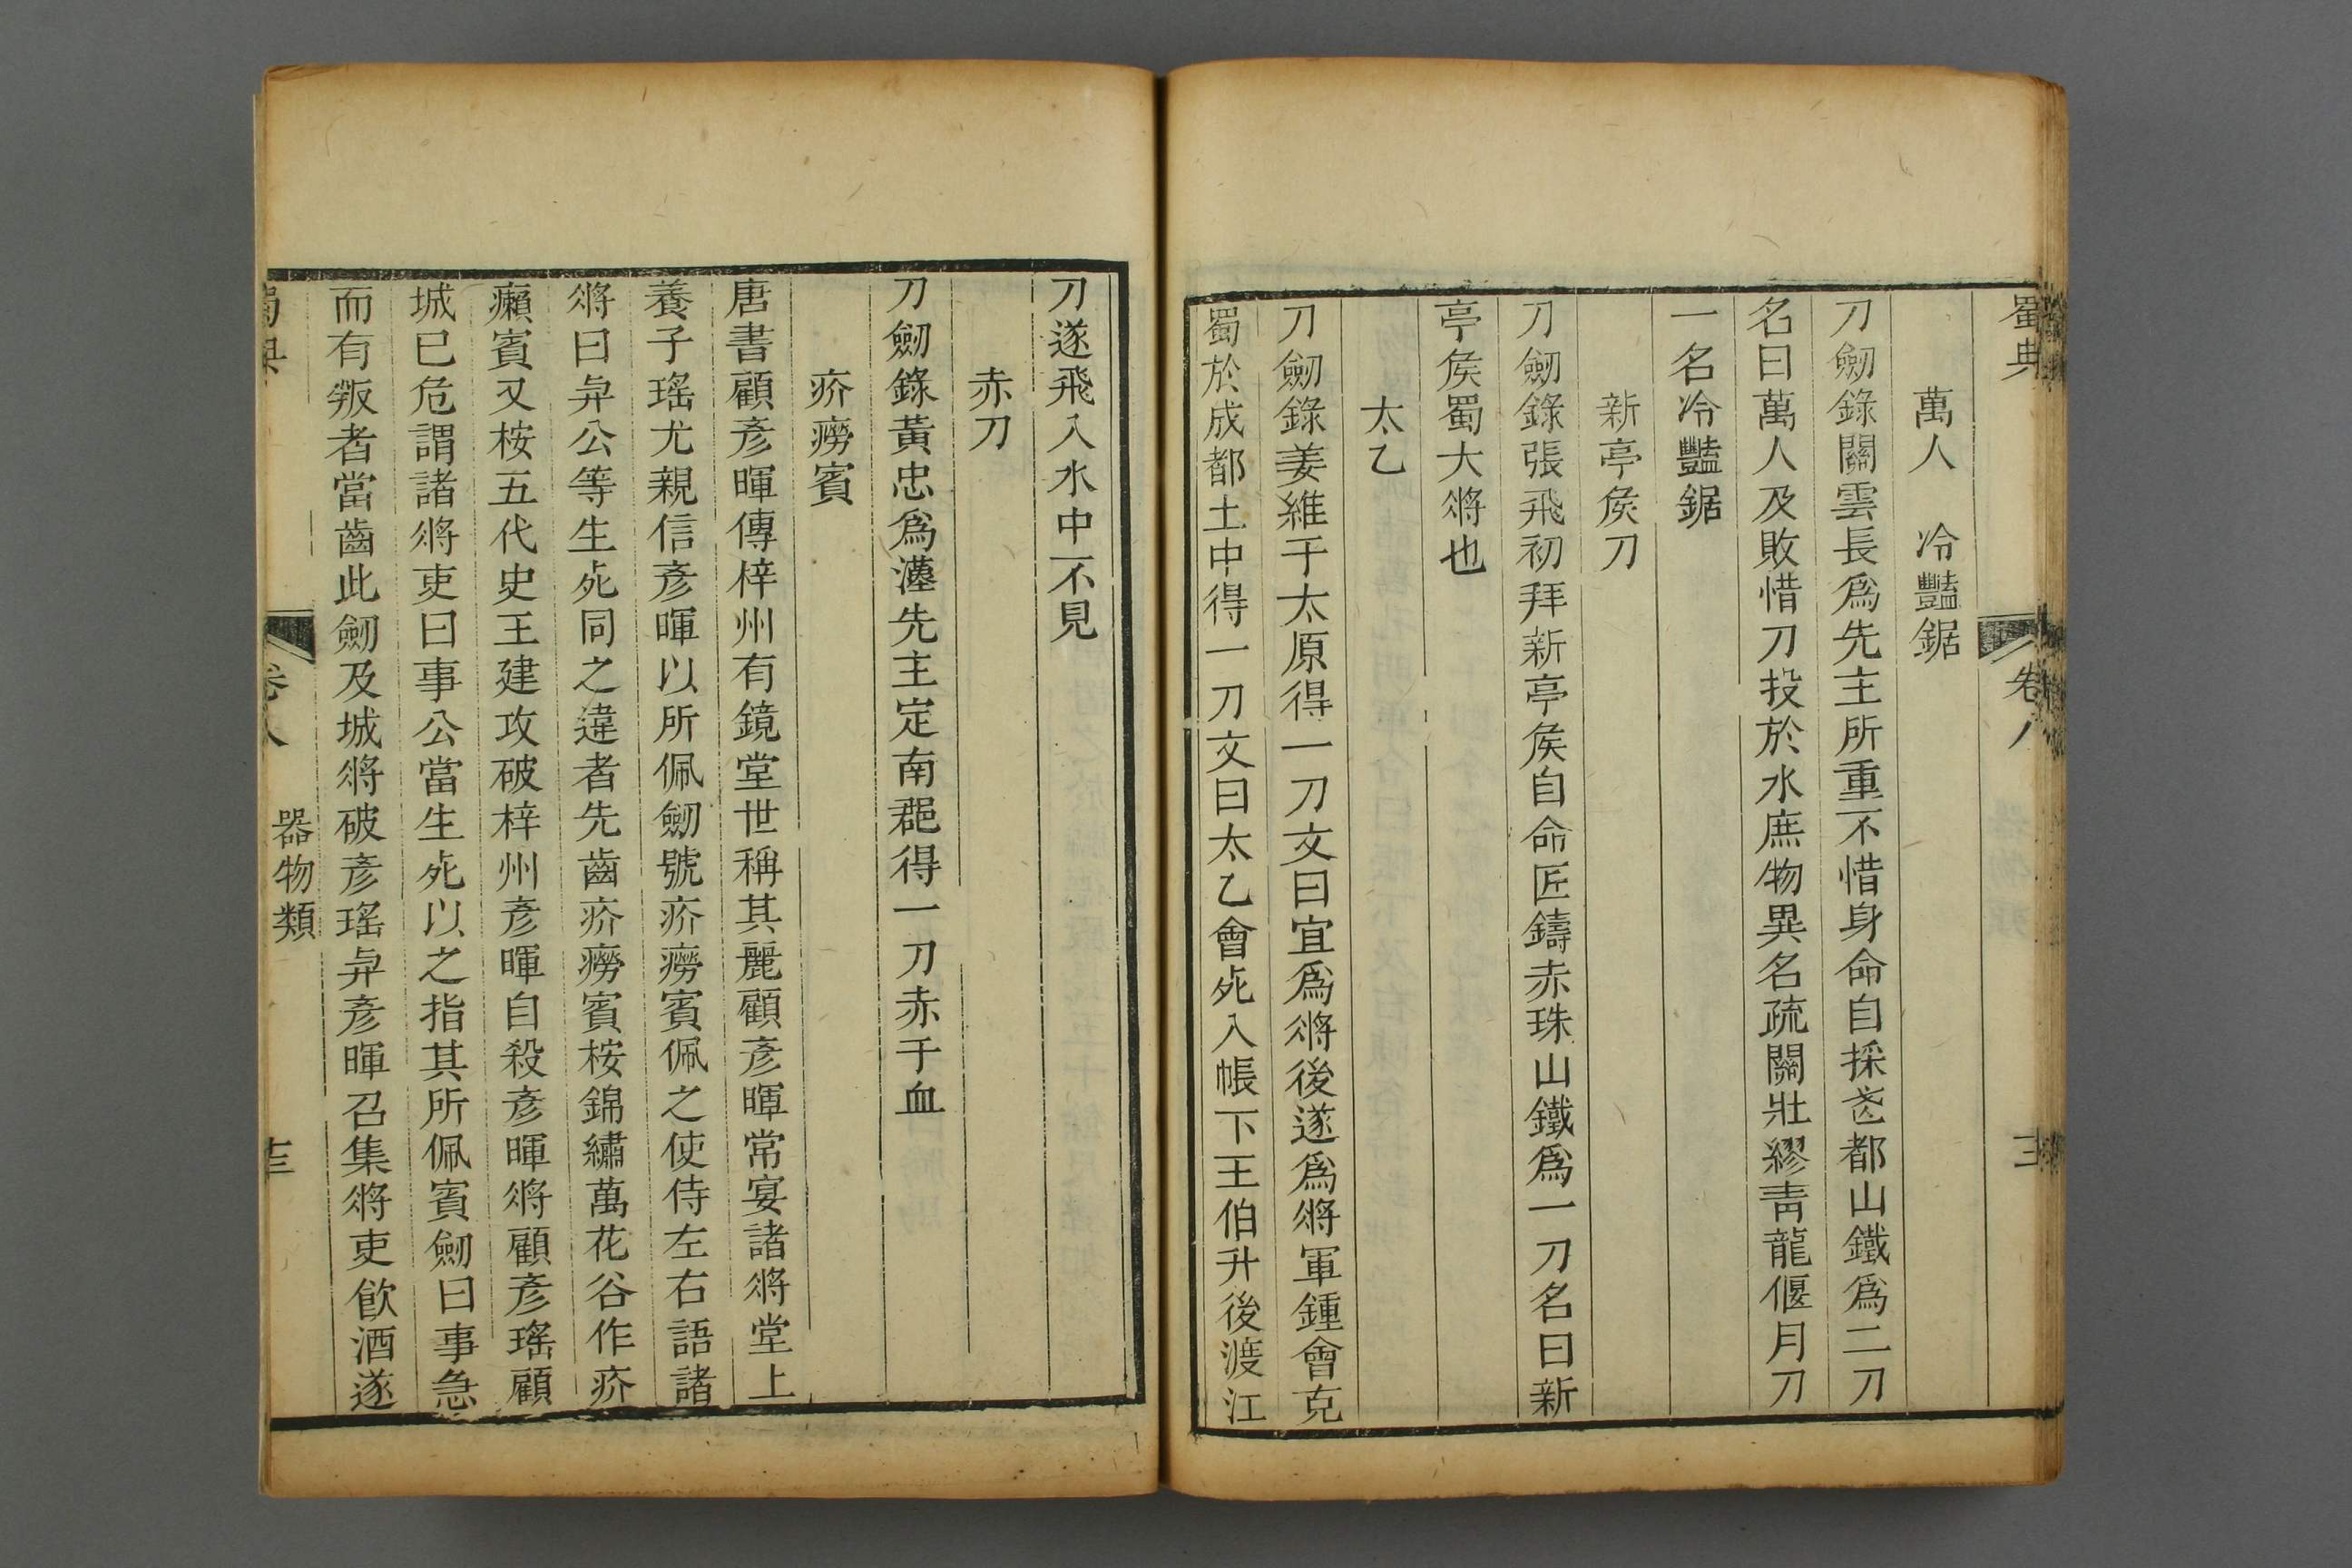 蜀典
卷八
萬人　冷豔鋸
刀劒錄關雲長爲先主所重不惜身命自採都山鐵爲二刀
名曰萬人及敗惜刀投於水庶物異名疏關壯繆青龍偃月刀
一名冷豔鋸
新亭矦刀
刀劒錄張飛初拜新亭矦自命匠鑄赤珠山鐵爲一刀名曰新
亭矦蜀大將也
太乙
刀劒錄姜維于太原得一刀文曰宜爲將後遂爲將軍鍾會克
蜀於成都土中得一刀文曰太乙會死入帳下王伯升後渡江
刀遂飛入水中不見
赤刀
刀劒錄黃忠爲漢先主定南郡得一刀赤于血
疥癆賓
唐書顧彥暉傳梓州有鏡堂世稱其麗顧彥暉常宴諸將堂上
養子瑤尤親信彥暉以所佩劒號疥癆賓佩之使侍左右語諸
將曰與公等生死同之違者先齒疥癆賓桉錦繡萬花谷作疥
癩賓又桉五代史王建攻破梓州彥暉自殺彥暉將顧彥瑤顧
城已危謂諸將吏曰事公當生死以之指其所佩賓劒曰事急
而有叛者當齒此劒及城將破彥瑤與彥暉召集將吏飮酒遂
蜀典
卷八
器物類
十三